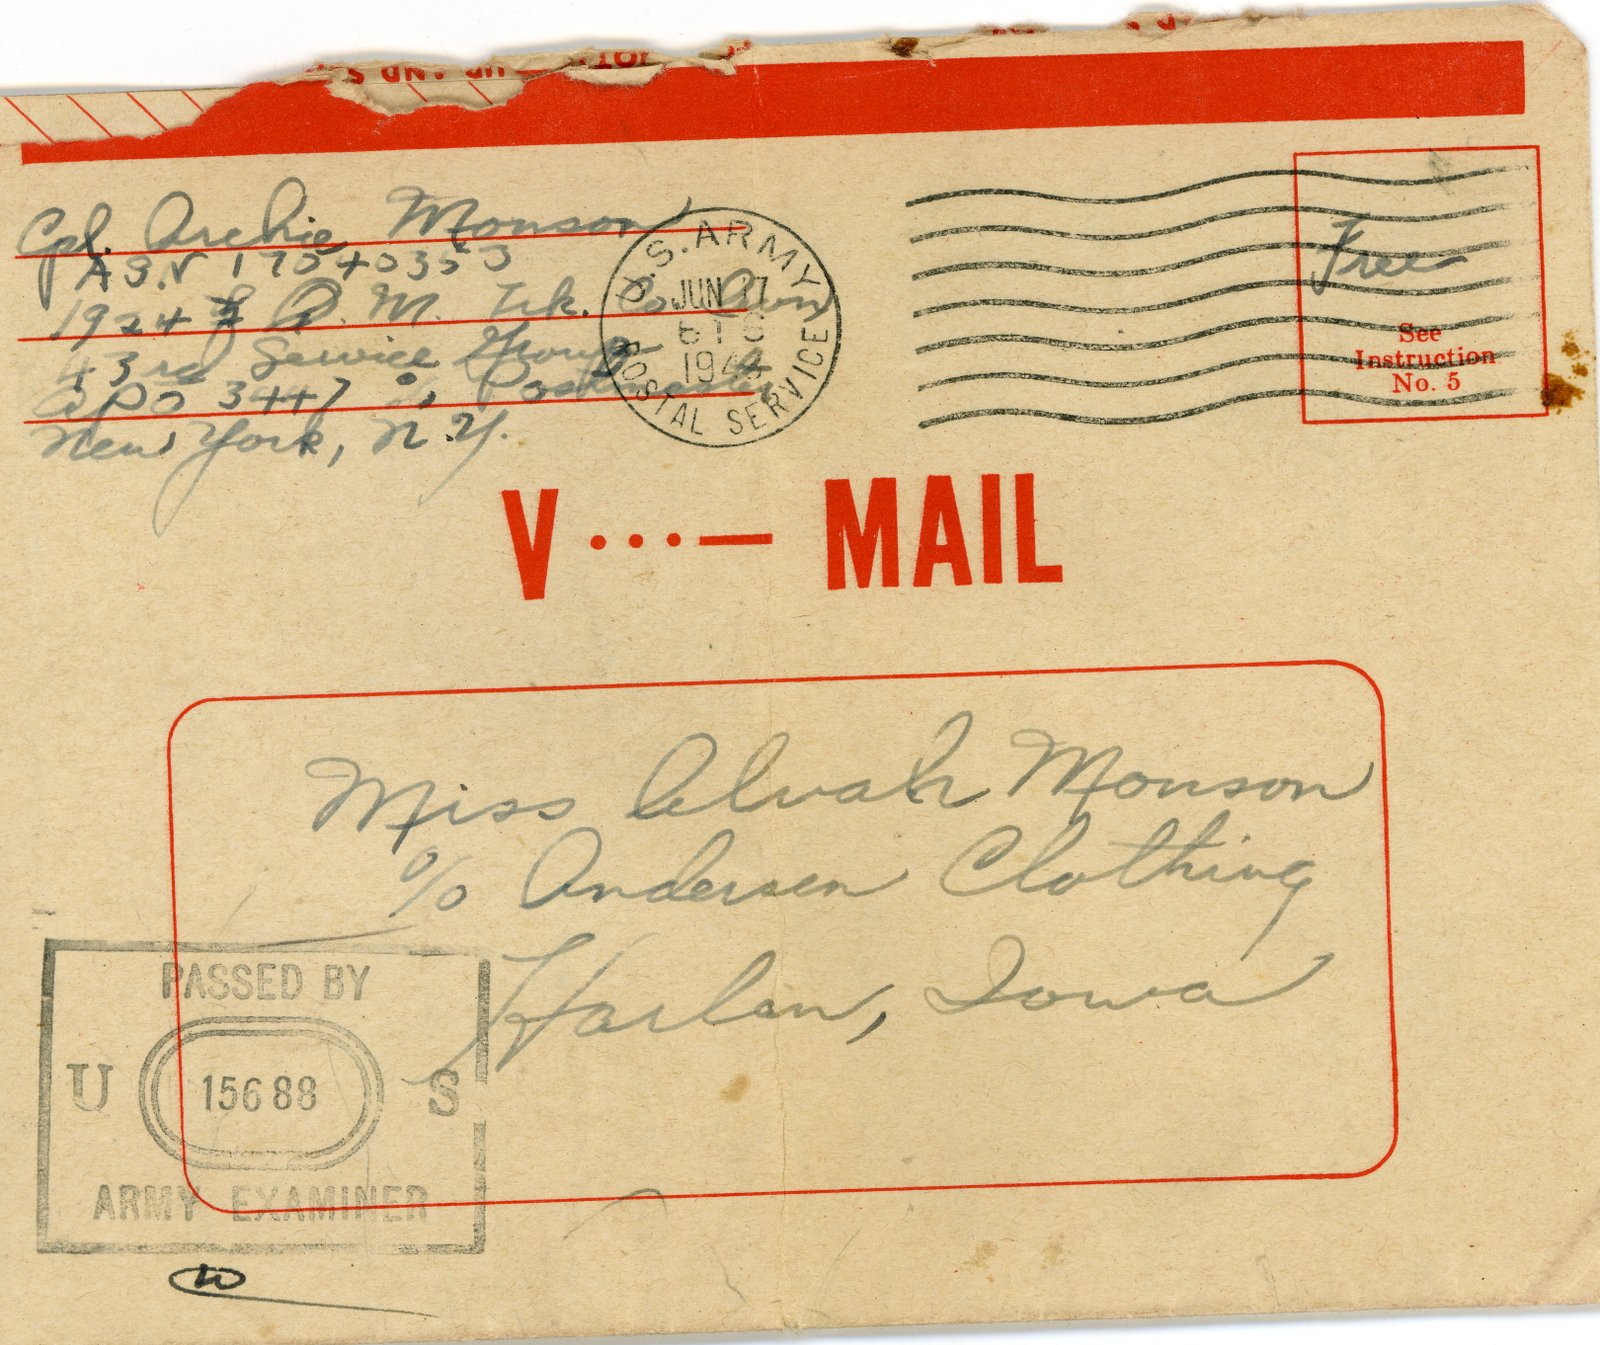 Cpl. Archie Monson
ASN 17040353
1924 Q. M. Trk. Co. Avn
43rd Service Group
APO 3447 c/o Postmaster
New York, N.Y.
U.S. ARMY
JUN 17
1944
POSTAL SERVICE
Free
See
Instruction
No. 5
V ···— MAIL
Miss Alvah Monson
c/o Andersen Clothing
Harlan, Iowa
PASSED BY
U 15688 S
ARMY EXAMINER